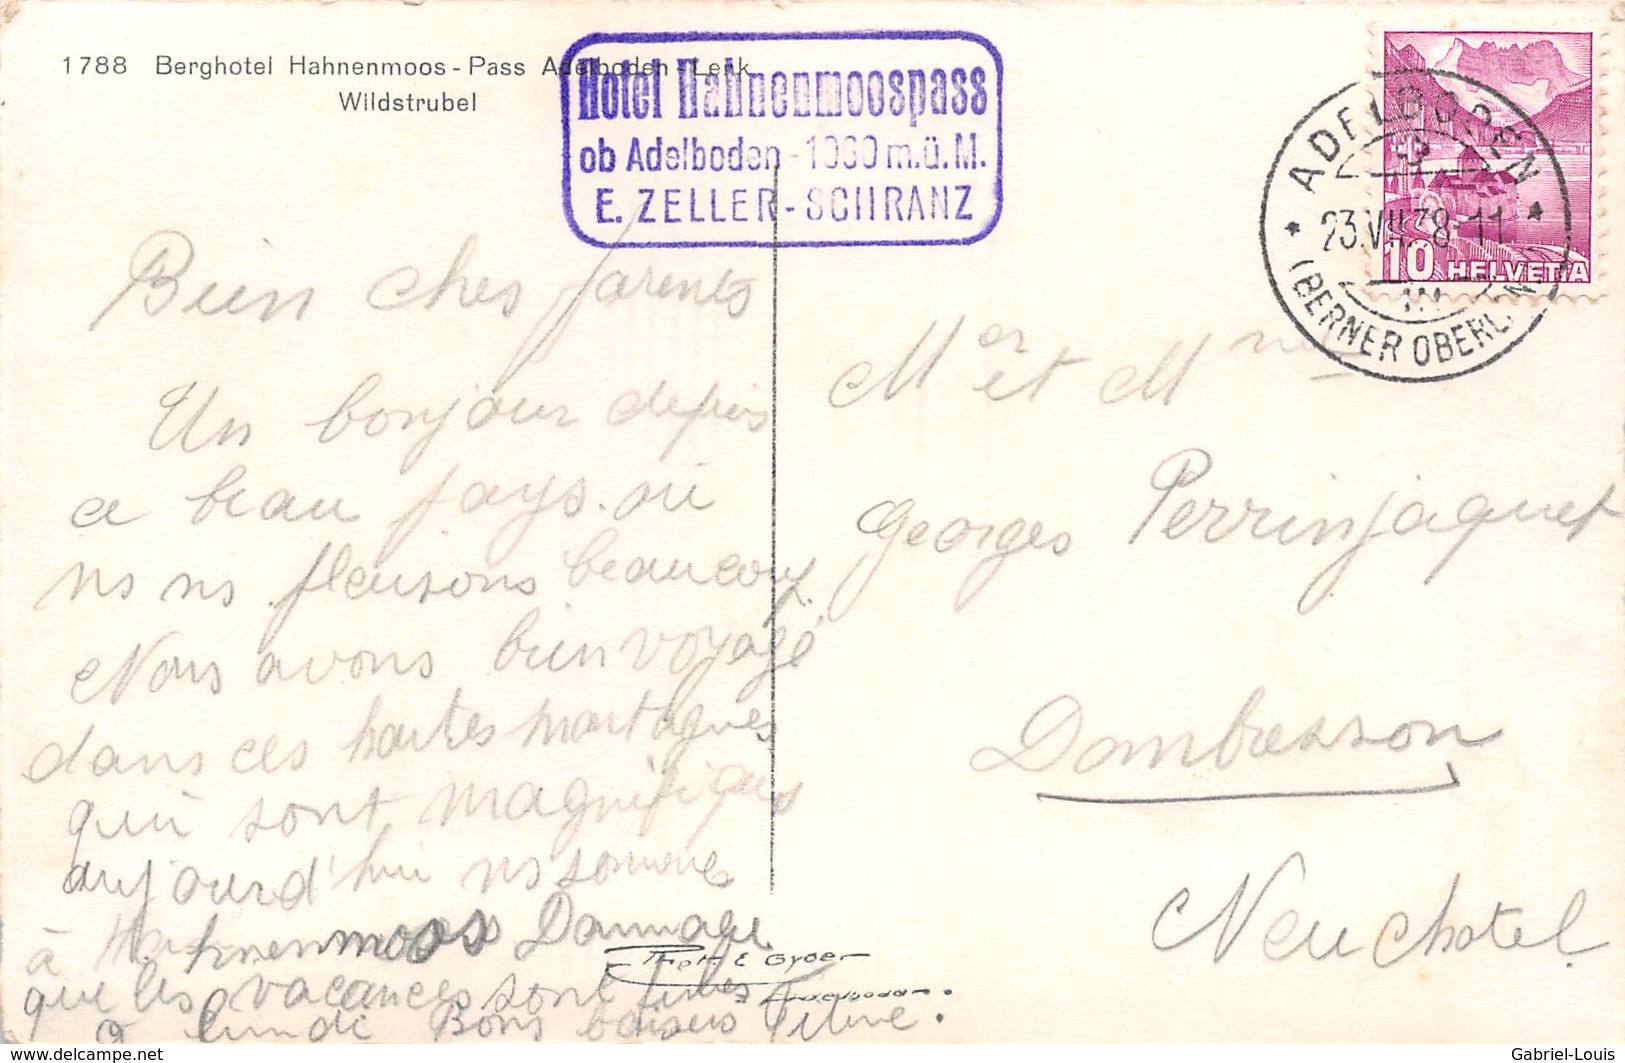 1788 Berghotel Hahnenmoos - Pass Adelboden - Lenk
Wildstrubel
Hotel Hahnenmoospass
ob Adelboden - 1960 m.ü.M.
E. ZELLER - SCHRANZ
ADELBODEN
23.VII.38-11
(BERNER OBERLAND)
10 HELVETIA
Bien chers parents
Un bonjour depuis
ce beau pays. où
ns ns plaisons beaucoup
Nous avons bien voyagé
dans ces hautes montagnes
qui sont magnifiques
aujourd'hui ns sommes
à Hahnenmoos Dommage
que les vacances sont
à lundi Bons baisers
Mer et Mme
Georges Perrinjaquet
Dombresson
Neuchatel
Phot. E Gyger
Adelboden.
www.delcampe.net
Gabriel-Louis